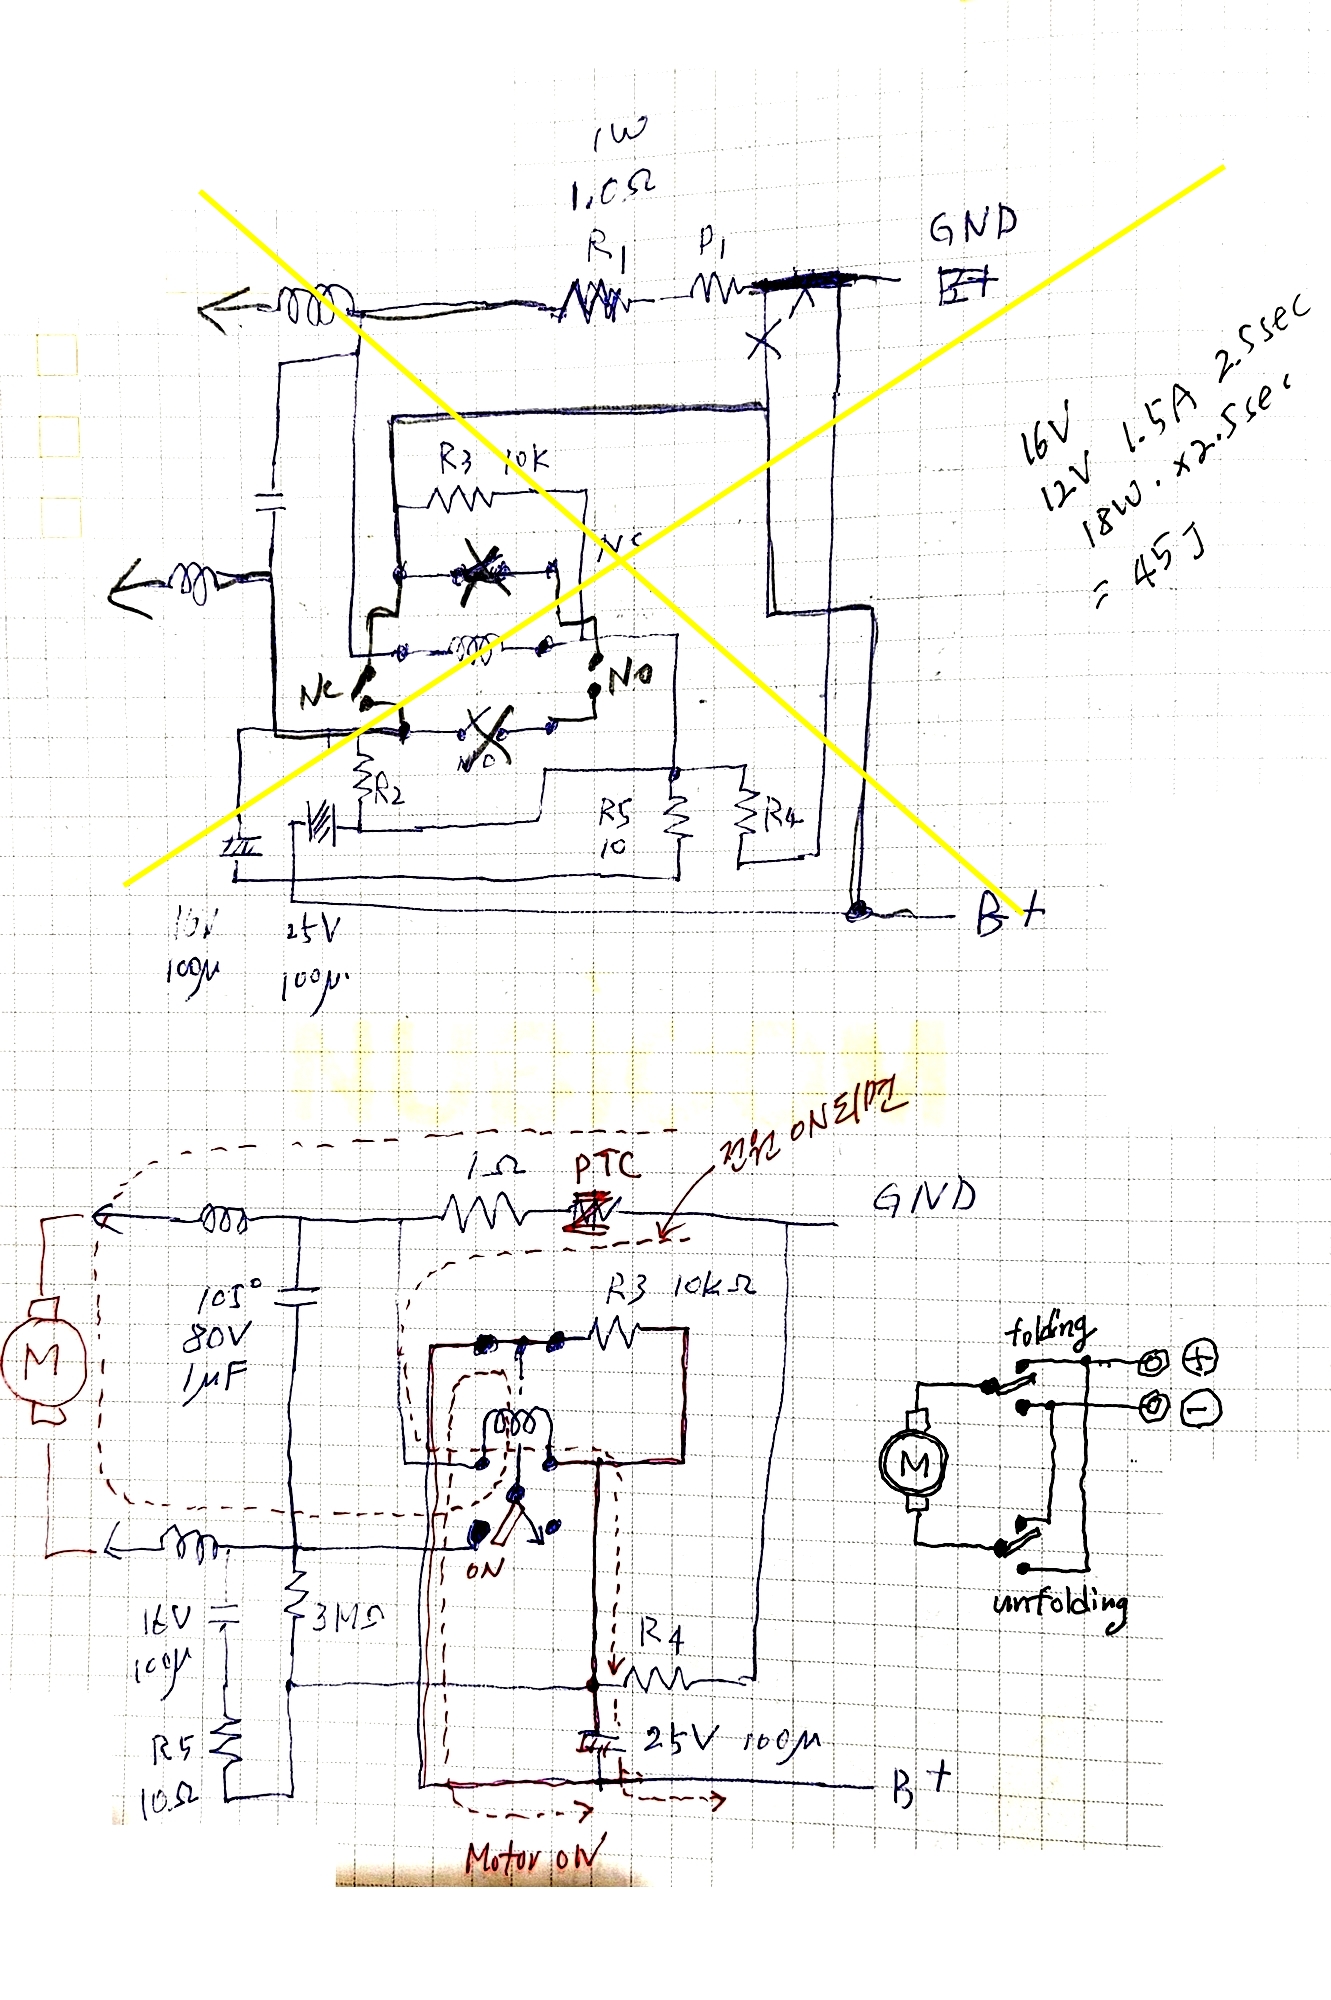 1W
1.0Ω
R1
P1
GND
16V
12V 1.5A 2.5sec
18W. x2.5sec
= 45J
R3 10K
NC
NC
NO
NO
R2
R5
10
R4
B+
16V
100μ
25V
100μ.
전원 ON되면
1Ω
PTC
GND
105°
80V
1μF
R3 10kΩ
M
folding
+
-
M
unfolding
ON
16V
100μ
3MΩ
R4
R5
10Ω
25V 100μ
B+
Motor ON